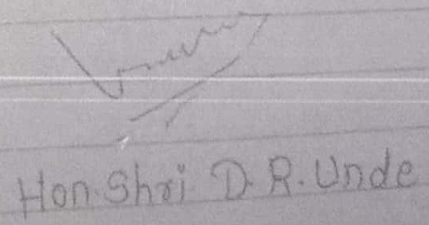 Hon. Shri D. R. Unde